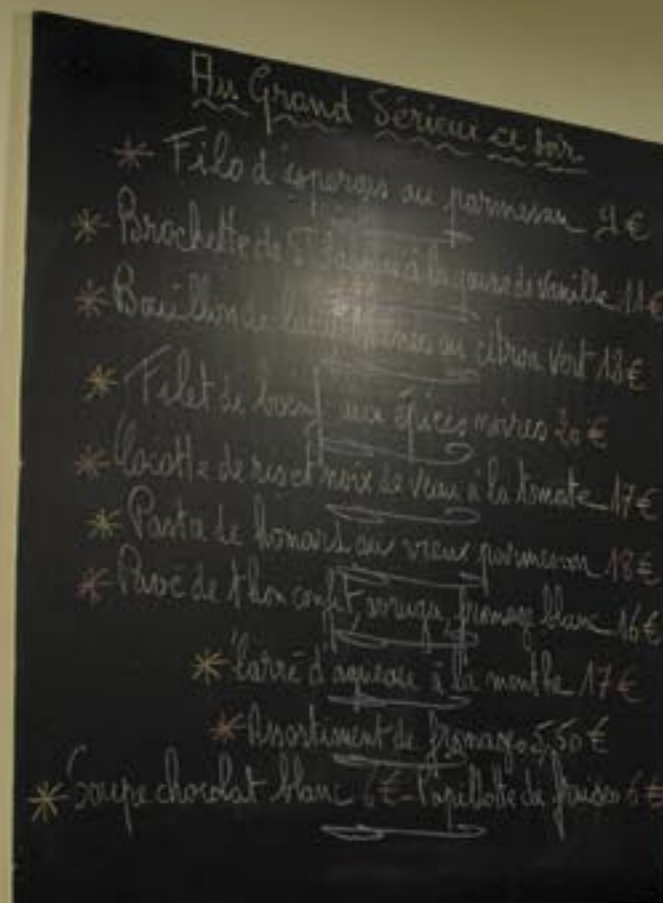 Au Grand Sérieux ce soir
Filo d'asperges au parmesan 9€
Brochette de St Jacques à la gousse de Vanille 18€
Bouillon de au citron vert 18€
Filet de boeuf aux épices noires 20€
Cocotte de ris et noix de veau à la tomate 17€
Pasta de homard au vieux parmesan 18€
Pavé de thon confit, fromage blanc 16€
Carré d'agneau à la menthe 17€
Assortiment de fromages 5,50€
Soupe chocolat blanc 6€ - Papillotte de fraises 6€